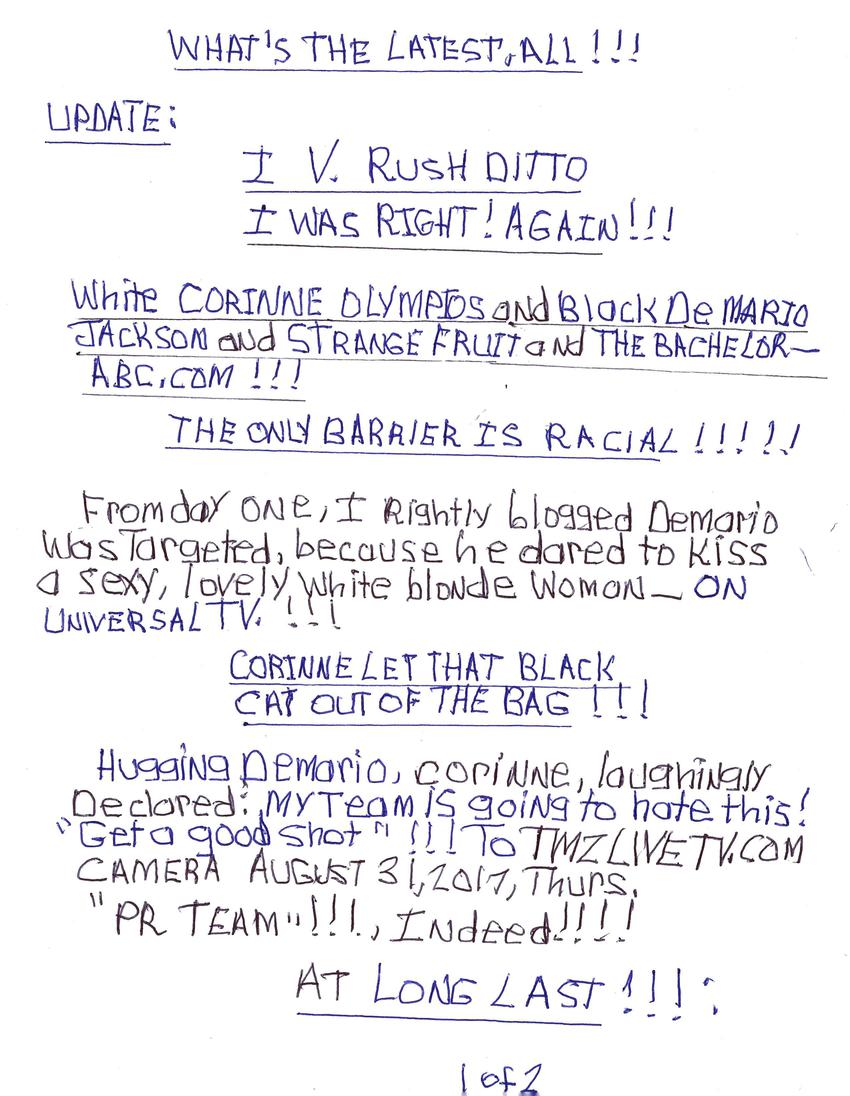 WHAT'S THE LATEST, ALL!!!
UPDATE:
I V. RUSH DITTO
I WAS RIGHT! AGAIN!!!
White CORINNE OLYMPIOS and Black DeMARIO
JACKSON and STRANGE FRUIT and THE BACHELOR—
ABC.COM !!!
THE ONLY BARRIER IS RACIAL !!!!!
From day ONE, I Rightly blogged Demario
Was Targeted, because he dared to kiss
a sexy, lovely, White blonde Woman— ON
UNIVERSAL TV. !!!
CORINNE LET THAT BLACK
CAT OUT OF THE BAG !!!
Hugging Demario, Corinne, laughingly
Declared: My Team is going to hate this!
"Get a good shot" !!! To TMZLIVETV.COM
CAMERA AUGUST 31, 2017, Thurs.
"PR TEAM" !!!., Indeed!!!!
AT LONG LAST !!! :
1 of 2